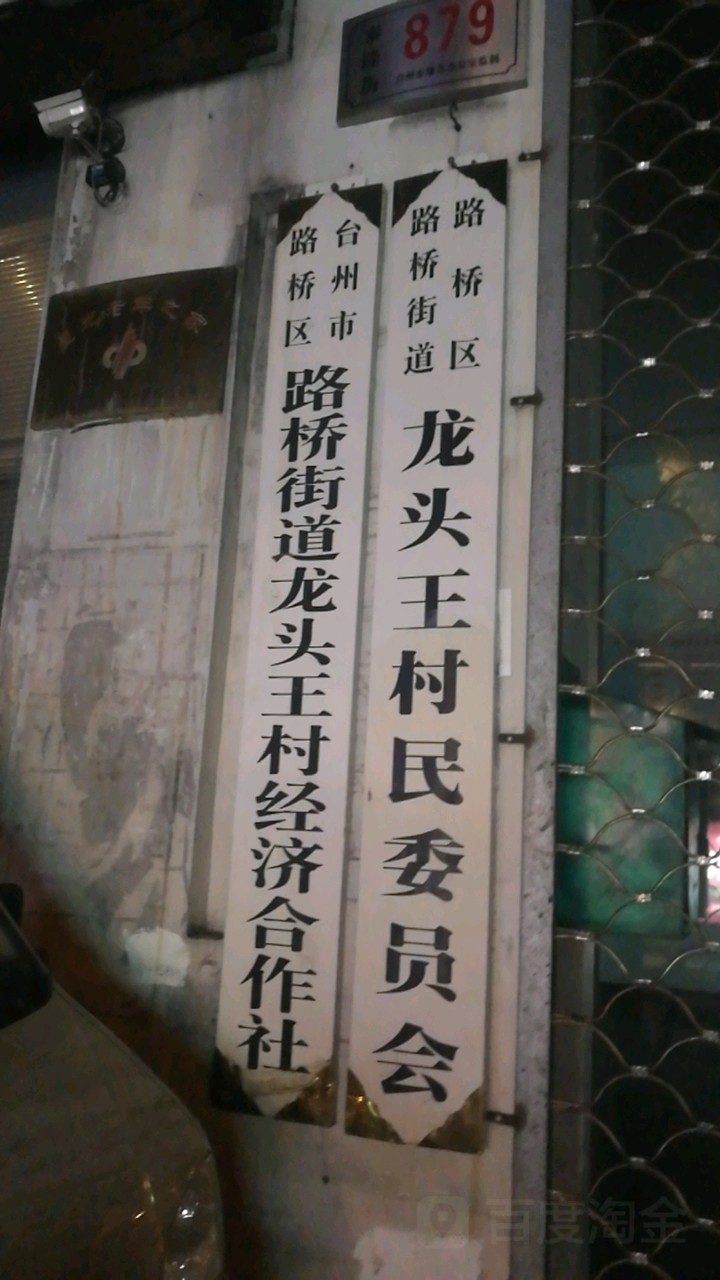 879
路桥区
路桥街道
龙头王村民委员会
台州市
路桥区
路桥街道龙头王村经济合作社
百度淘金